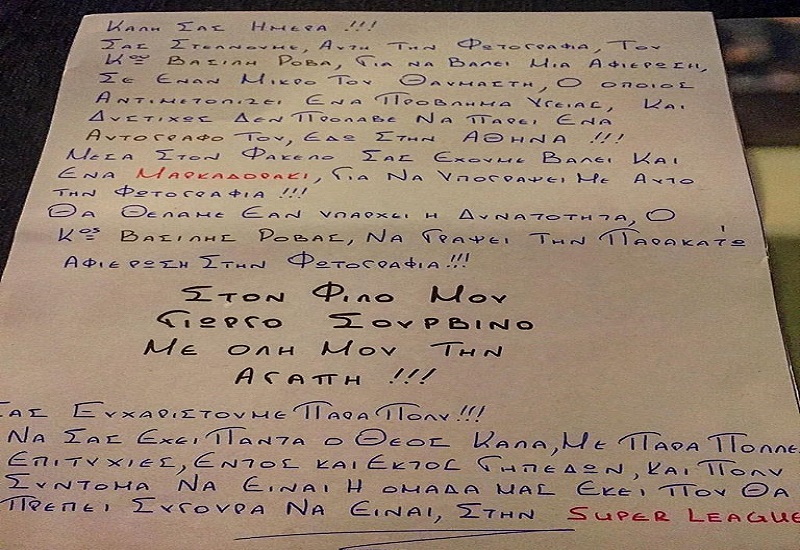 ΚΑΛΗ ΣΑΣ ΗΜΕΡΑ !!!
ΣΑΣ ΣΤΕΛΝΟΥΜΕ, ΑΥΤΗ ΤΗΝ ΦΩΤΟΓΡΑΦΙΑ, ΤΟΥ
Κου ΒΑΣΙΛΗ ΡΟΒΑ, ΓΙΑ ΝΑ ΒΑΛΕΙ ΜΙΑ ΑΦΙΕΡΩΣΗ,
ΣΕ ΕΝΑΝ ΜΙΚΡΟ ΤΟΥ ΘΑΥΜΑΣΤΗ, Ο ΟΠΟΙΟΣ
ΑΝΤΙΜΕΤΟΠΙΖΕΙ ΕΝΑ ΠΡΟΒΛΗΜΑ ΥΓΕΙΑΣ, ΚΑΙ
ΔΥΣΤΙΧΩΣ ΔΕΝ ΠΡΟΛΑΒΕ ΝΑ ΠΑΡΕΙ ΕΝΑ
ΑΥΤΟΓΡΑΦΟ ΤΟΥ, ΕΔΩ ΣΤΗΝ ΑΘΗΝΑ !!!
ΜΕΣΑ ΣΤΟΝ ΦΑΚΕΛΟ ΣΑΣ ΕΧΟΥΜΕ ΒΑΛΕΙ ΚΑΙ
ΕΝΑ ΜΑΡΚΑΔΟΡΑΚΙ, ΓΙΑ ΝΑ ΥΠΟΓΡΑΨΕΙ ΜΕ ΑΥΤΟ
ΤΗΝ ΦΩΤΟΓΡΑΦΙΑ !!!
ΘΑ ΘΕΛΑΜΕ ΕΑΝ ΥΠΑΡΧΕΙ Η ΔΥΝΑΤΟΤΗΤΑ, Ο
Κος ΒΑΣΙΛΗΣ ΡΟΒΑΣ, ΝΑ ΓΡΑΨΕΙ ΤΗΝ ΠΑΡΑΚΑΤΩ
ΑΦΙΕΡΩΣΗ ΣΤΗΝ ΦΩΤΟΓΡΑΦΙΑ!!!
ΣΤΟΝ ΦΙΛΟ ΜΟΥ
ΓΙΩΡΓΟ ΣΟΥΡΒΙΝΟ
ΜΕ ΟΛΗ ΜΟΥ ΤΗΝ
ΑΓΑΠΗ !!!
ΣΑΣ ΕΥΧΑΡΙΣΤΟΥΜΕ ΠΑΡΑ ΠΟΛΥ!!!
ΝΑ ΣΑΣ ΕΧΕΙ ΠΑΝΤΑ Ο ΘΕΟΣ ΚΑΛΑ, ΜΕ ΠΑΡΑ ΠΟΛΛΕ
ΕΠΙΤΥΧΙΕΣ, ΕΝΤΟΣ ΚΑΙ ΕΚΤΟΣ ΓΗΠΕΔΩΝ, ΚΑΙ ΠΟΛΥ
ΣΥΝΤΟΜΑ ΝΑ ΕΙΝΑΙ Η ΟΜΑΔΑ ΜΑΣ ΕΚΕΙ ΠΟΥ ΘΑ
ΠΡΕΠΕΙ ΣΥΓΟΥΡΑ ΝΑ ΕΙΝΑΙ, ΣΤΗΝ SUPER LEAGUE